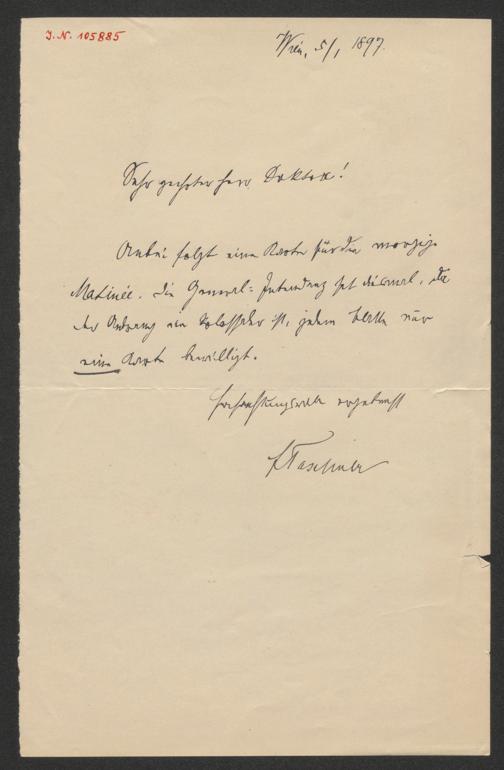 J.N. 105885
Wien, 5/1 1897.
Sehr geehrter Herr Doktor!
Anbei folgt eine Karte für die morgige
Matinée. Die General-Intendanz hat diesmal, da
der Andrang ein kolossaler ist, jedem Blatte nur
eine Karte bewilligt.
Hochachtungsvoll ergebenst